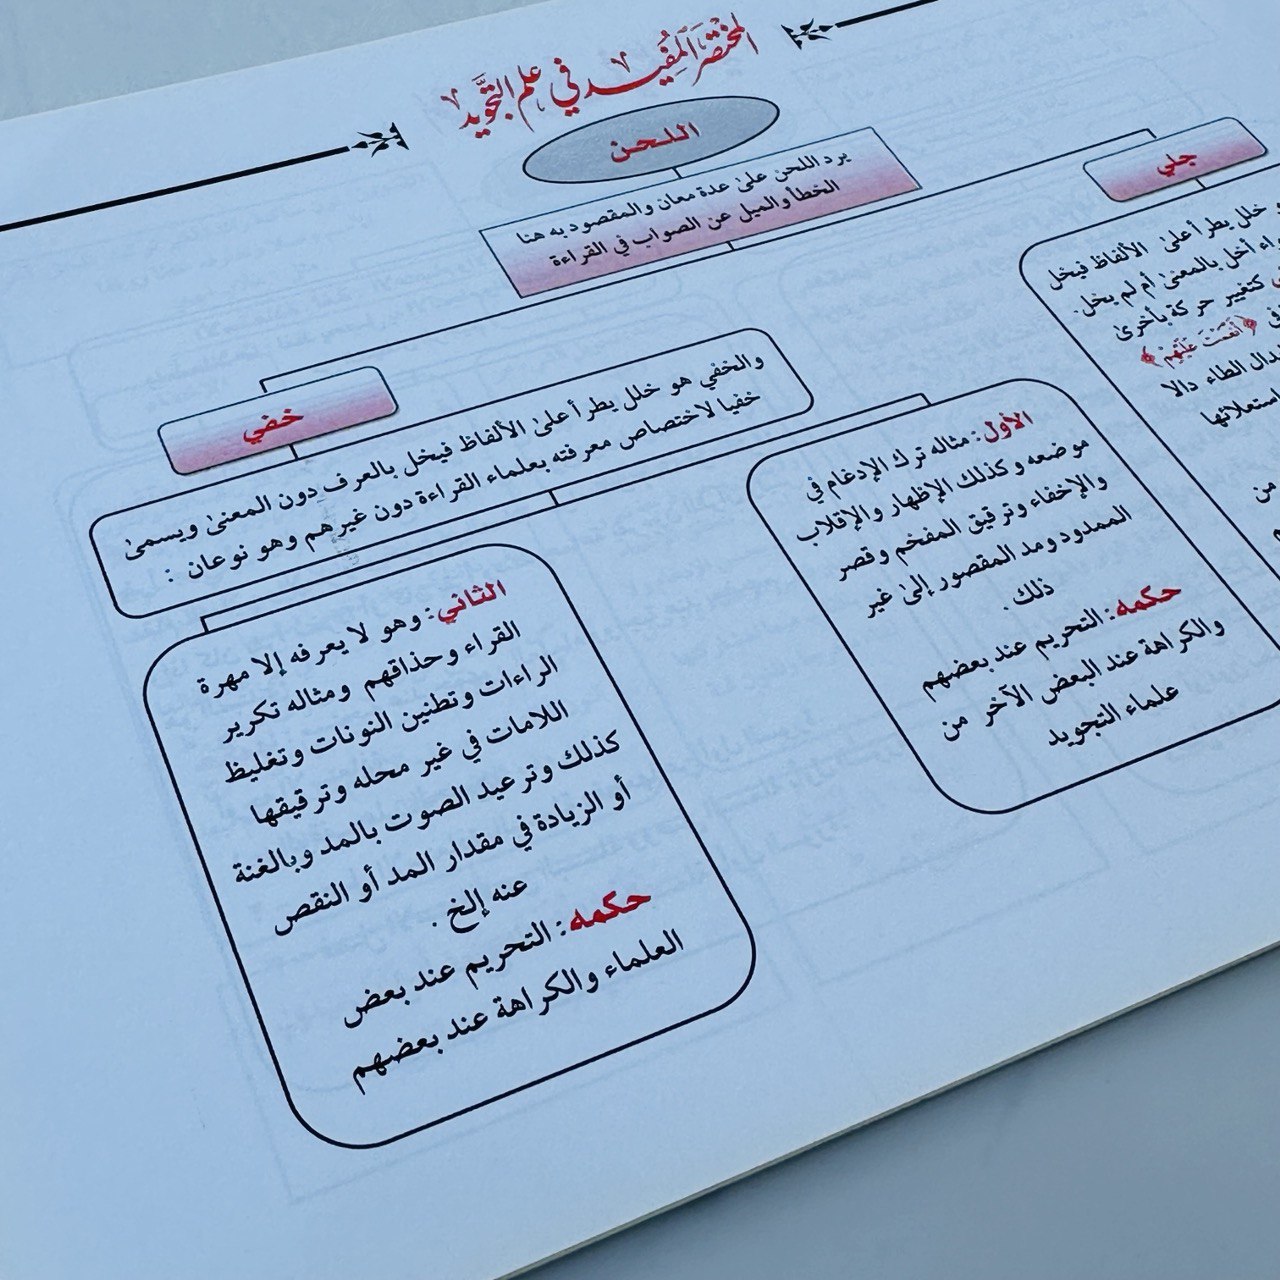 المختصر المفيد في علم التجويد
اللحن
يرد اللحن على عدة معان والمقصود به هنا
الخطأ والميل عن الصواب في القراءة
جلي
خلل يطرأ على الألفاظ فيخل
أخل بالمعنى أم لم يخل.
كتغيير حركة بأخرى
﴿أَنْعَمْتَ عَلَيْهِمْ﴾
الطاء دالا
استعلائها
من
خفي
والخفي هو خلل يطرأ على الألفاظ فيخل بالعرف دون المعنى ويسمى
خفيا لاختصاص معرفته بعلماء القراءة دون غيرهم وهو نوعان :
الأول: مثاله ترك الإدغام في
موضعه وكذلك الإظهار والإقلاب
والإخفاء وترقيق المفخم وقصر
الممدود ومد المقصور إلى غير
ذلك .
حكمه: التحريم عند بعضهم
والكراهة عند البعض الآخر من
علماء التجويد
الثاني: وهو لا يعرفه إلا مهرة
القراء وحذاقهم ومثاله تكرير
الراءات وتطنين النونات وتغليظ
اللامات في غير محله وترقيقها
كذلك وترعيد الصوت بالمد وبالغنة
أو الزيادة في مقدار المد أو النقص
عنه إلخ .
حكمه: التحريم عند بعض
العلماء والكراهة عند بعضهم